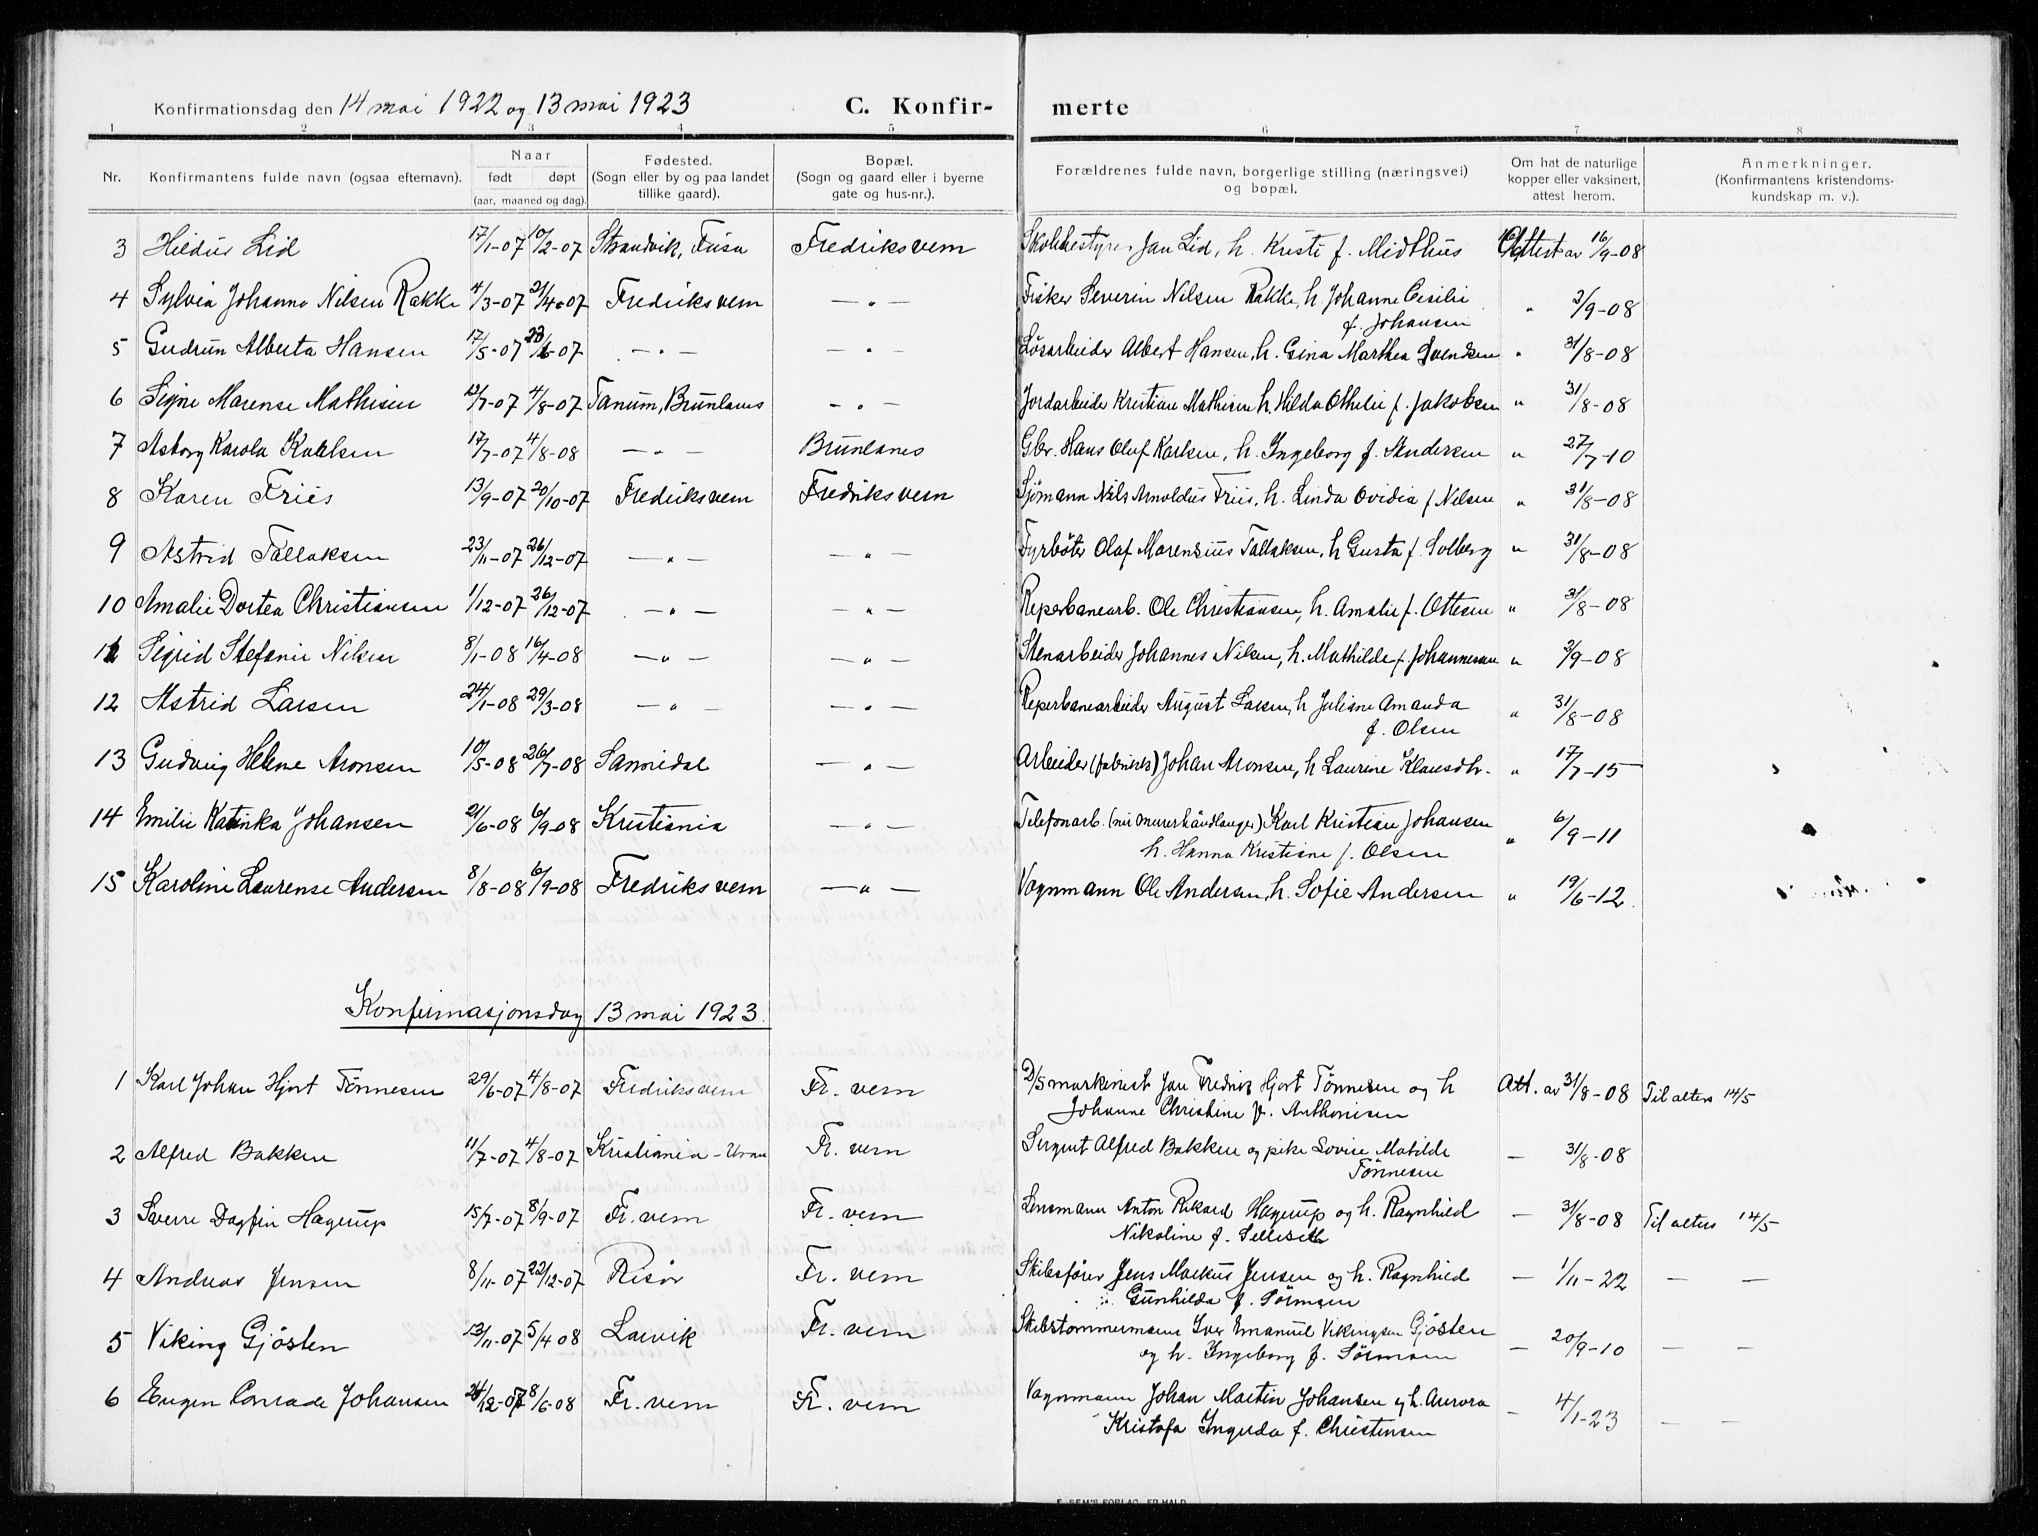 Konfirmationsdag den 14 mai 1922 og 13 mai 1923 C. Konfir- merte
1 2 3 4 5 6 7 8
Nr. Konfirmantens fulde navn (ogsaa efternavn). Naar født døpt (aar, maaned og dag). Fødested. (Sogn eller by og paa landet tillike gaard). Bopæl. (Sogn og gaard eller i byerne gate og hus-nr.). Forældrenes fulde navn, borgerlige stilling (næringsvei) og bopæl. Om hat de naturlige kopper eller vaksinert, attest herom. Anmerkninger. (Konfirmantens kristendoms- kundskap m. v.).
3 Hildur Lid 17/1-07 10/2-07 Strandvik, Fusa Fredriksvern Skolebestyrer Jan Lid, h. Kristi f. Midthus Attest av 16/9-08
4 Sylvia Johanne Nilsen Rakke 4/3-07 21/4-07 Fredriksvern — " — Fisker Severin Nilsen Rakke, h. Johanne Cecilie " 2/9-08
f. Johansen
5 Gudrun Alberta Hansen 17/5-07 23/6-07 — " — — " — Løsarbeider Albert Hansen, h. Gina Marthea Svendsen " 31/8-08
6 Signe Marense Mathisen 13/7-07 4/8-07 Tanum, Brunlanes — " — Jordarbeider Kristian Mathisen h. Hilda Othelie f. Jakobsen " 31/8-08
7 Asborg Karola Karlsen 17/7-07 4/8-08 — " — Brunlanes Gbr. Hans Oluf Karlsen, h. Ingeborg f. Andersen " 27/7-10
8 Karen Friis 13/9-07 20/10-07 Fredriksvern Fredriksvern Sjømann Nils Arnoldus Friis, h. Linda Ovidia f Nilsen " 31/8-08
9 Astrid Tallaksen 23/11-07 26/12-07 — " — — " — Fyrbøter Olaf Marensius Tallaksen, h Gusta f. Solberg " 31/8-08
10 Amalie Dortea Christiansen 1/12-07 26/12-07 — " — — " — Reperbanearb. Ole Christiansen, h. Amalie f. Ottesen " 31/8-08
11 Sigrid Stefanie Nilsen 8/1-08 16/4-08 — " — — " — Stenarbeider Johannes Nilsen, h. Mathilde f. Johannesen " 2/9-08
12 Astrid Larsen 24/1-08 29/3-08 — " — — " — Reperbanearbeider August Larsen, h Juliane Amanda " 31/8-08
f. Olsen
13 Gudveig Helene Aronsen 10/5-08 26/7-08 Sannidal — " — Arbeider (fabrikks) Johan Aronsen, h Laurine Klausdtr. " 17/7-15
14 Emilie Katinka Johansen 21/6-08 6/9-08 Kristiania — " — Telefonarb. (nu murerhåndlanger) Karl Kristian Johansen " 6/9-11
h. Hanna Kristiane f. Olsen
15 Karoline Laurense Andersen 8/8-08 6/9-08 Fredriksvern — " — Vognmann Ole Andersen, h. Sofie Andersen " 19/6-12
Konfirmasjonsdag 13 mai 1923.
1 Karl Johan Hjort Tønnesen 29/6-07 4/8-07 Fredriksvern Fr. vern D/s maskinist Jan Fredrik Hjort Tønnesen og h Att. av 31/8-08 Til alters 14/5
Johanne Christine f. Anthonisen
2 Alfred Bakken 11/7-07 4/8-07 Kristiania - Fr. vern Sergent Alfred Bakken og pike Lovise Matilde — 31/8-08
Tønnesen
3 Sverre Dagfin Hagerup 15/7-07 8/9-07 Fr. vern Fr. vern Lensmann Anton Rikard Hagerup og h. Ragnhild — 31/8-08 Til alters 14/5
Nikoline f. Selliseth
4 Andreas Jensen 8/11-07 22/12-07 Risør Fr. vern Skibsfører Jens Markus Jensen og h. Ragnhild — 1/11-22 — —
Gunhilda f. Sørensen
5 Viking Gjøsten 13/11-07 5/4 08 Larvik Fr. vern Skibstømmermann Iver Emanuel Vikingsen Gjøsten — 20/9-10 — —
og h. Ingeborg f. Sørensen
6 Eugen Conrade Johansen 24/12-07 8/6-08 Fr. vern Fr. vern Vognmann Johan Martin Johansen og h. Aurora — 4/1-23 — —
Kristofa Ingeda f. Christensen